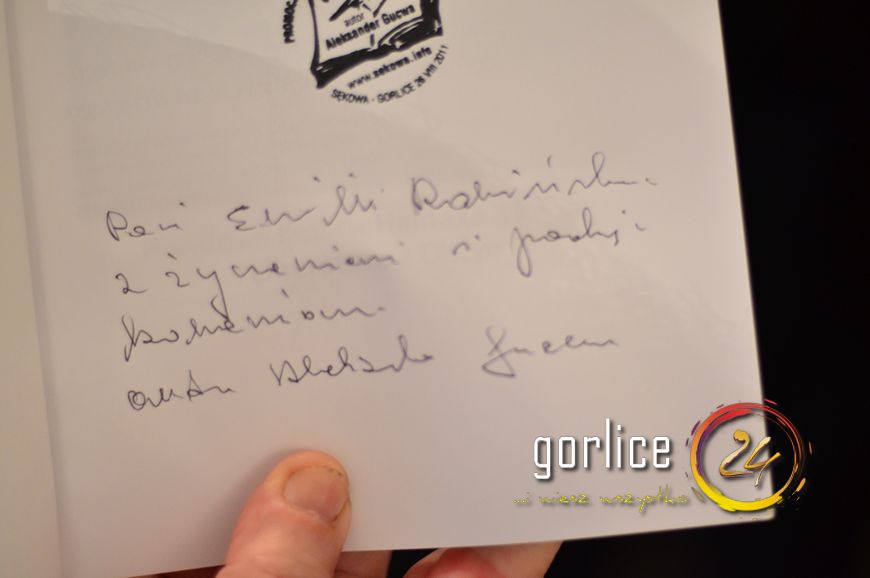 PROMOC
autor
Aleksander Gucwa
www.sekowa.info
SĘKOWA - GORLICE 26 VIII 2011
Pani Emilii
z życzeniami i podzię-
kowaniem
autor Aleksander Gucwa
gorlice 24
...i wiesz wszystko